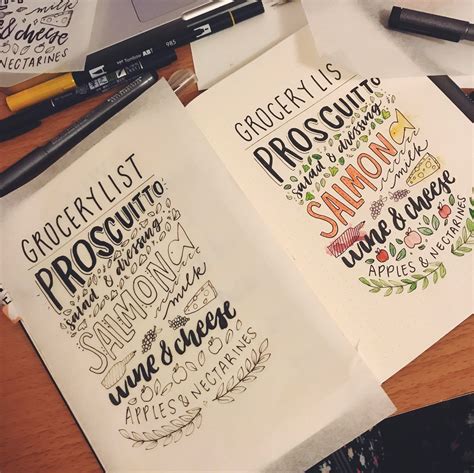 milk
& cheese
NECTARINES
Tombow ABT
985
GROCERY LIST
PROSCUITTO
salad & dressing
SALMON
milk
wine & cheese
APPLES & NECTARINES
GROCERY LIS
PROSCUITTO
salad & dressing
SALMON
milk
wine & cheese
APPLES & NECTARINES